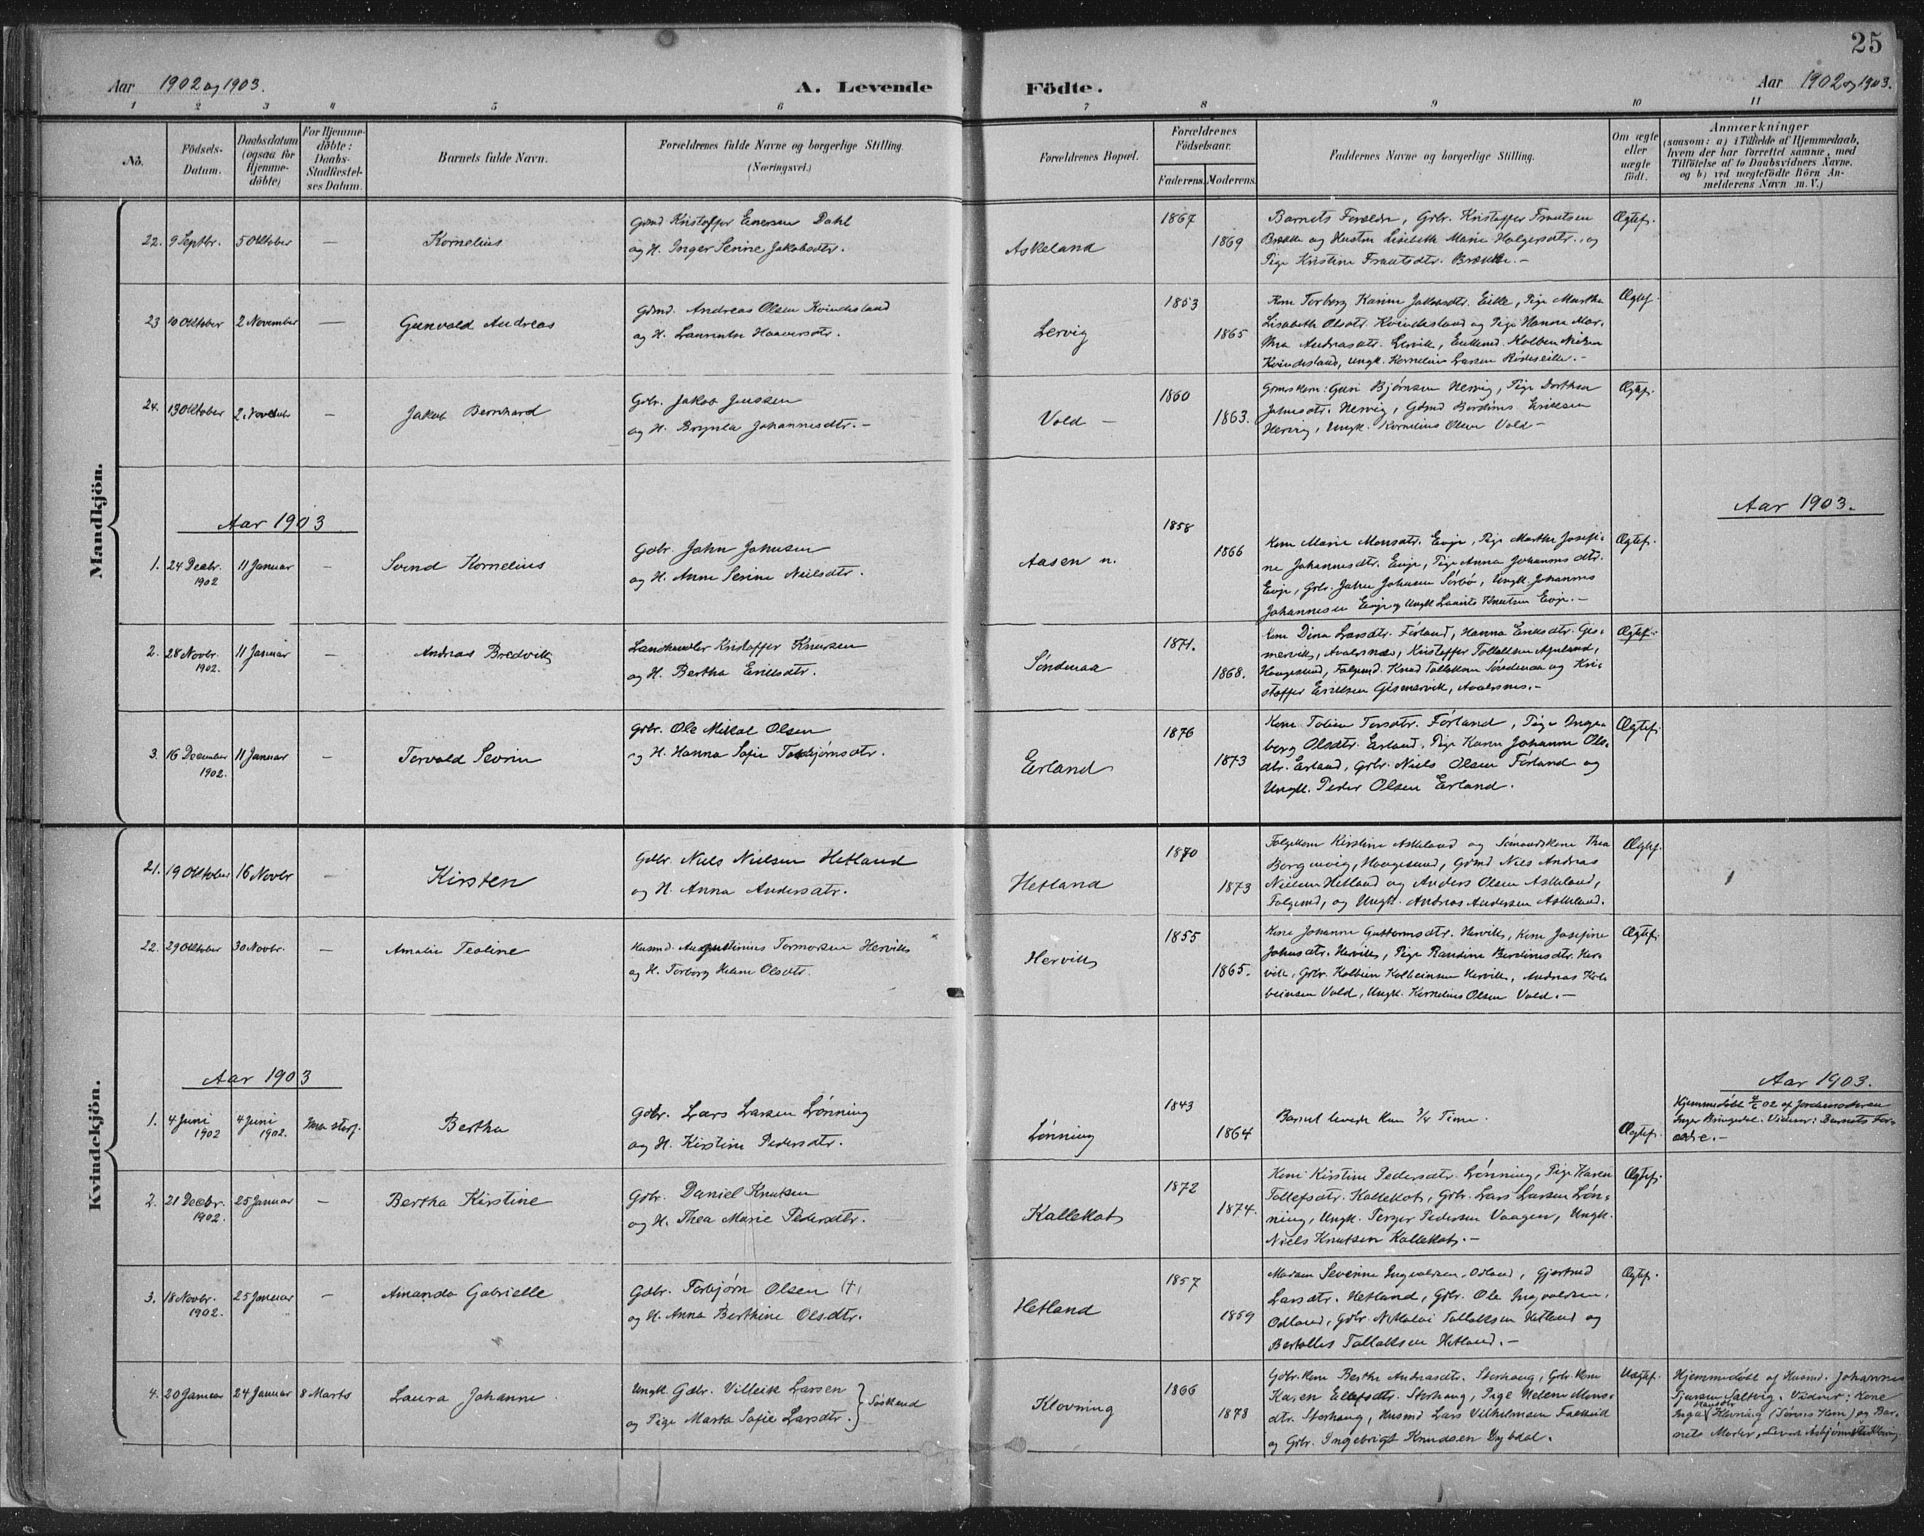 25
Aar 1902 og 1903.
A. Levende
Födte.
Aar 1902 og 1903.
1 2 3 4 5 6 7 8 9 10 11
No.
Födsels-
Datum.
Daabsdatum
(ogsaa for
Hjemme-
döbte)
For Hjemme-
döbte:
Daabs-
Stadfæstel-
ses Datum.
Barnets fulde Navn.
Forældrenes fulde Navne og borgerlige Stilling.
(Næringsvei.)
Forældrenes Bopæl.
Forældrenes
Födselsaar.
Faderens. Moderens.
Faddernes Navne og borgerlige Stilling.
Om ægte
eller
uægte
födt.
Anmærkninger
(saasom: a) i Tilfælde af Hjemmedaab,
hvem der har forrettet samme, med
Tilföielse af to Daabsvidners Navne.
og b) ved uægtefödte Börn An-
melderens Navn m. V.)
Mandkjön.
22. 9 Septbr. 5 Oktober — Kornelius
Gdmd Kristoffer Enersen Dahl
og H. Inger Serine Jakobsdtr.
Askeland
1867
1869
Barnets Forældre, Gbr. Kristoffer Frantsen
Brække og Hustru Lisebeth Marie Holgersdtr. og
Pige Kristine Frantsdtr. Brække.—
Ægtef.
23 10 Oktober 2 November — Gunvald Andreas
Gdmd. Andreas Olsen Kvindesland
og H. Laurentse Haaversdtr.
Lervig
1853
1865
Kone Torborg Karine Jakobsdtr. Eikje, Pige Martha
Lisabeth Olsdtr. Kvindesland og Pige Hanna Mar-
tha Andreasdtr. Lervik, Enkemd. Kolben Nielsen
Kvindesland, Ungk. Kornelius Larsen Rödseike.—
Ægtef.
24. 13 Oktober 2 Novembr — Jakob Bernhard
Gbr. Jakob Jenssen
og H. Brynla Johannesdtr.—
Vold —
1860
1863.
Gdmdskone: Guri Bjørnsen Hervig, Pige Dorthea
Johnsdtr. Hervig, Gdmd Berdines Eriksen
Hervig, Ungk. Kornelius Olsen Vold—
Ægtef.
Aar 1903
Aar 1903.
1. 24 Decbr. 1902 11 Januar — Svend Kornelius
Gdbr. John Johnsen
og H. Anne Serine Nielsdtr.
Aasen n.
1858
1866
Kone Marie Monsdtr. Evje, Pige Marthe Josefi-
ne Johannesdtr. Evje, Pige Anna Johannesdtr.
Evje, Gbr. John Johnsen Sörbö, Ungk. Johannes
Johannesen Evje og Ungk Laurits Knutsen Evje.—
Ægtef.
2. 28 Novbr. 1902. 11 Januar — Andreas Bredvik
Landhandler Kristoffer Knutsen
og H. Bertha Eriksdtr.
Söndenaa
1871.
1868.
Kone Dina Larsdtr. Förland, Hanna Eriksdtr. Gis-
mervik, Avalsnes, Kristoffer Tollaksen Apeland,
Haugesund, Folgemd. Knud Tollaksen Söndenaa og Kri-
stoffer Eriksen Gismervik, Avalsnes.—
Ægtef.
3. 16 December 1902. 11 Januar — Torvald Severin
Gbr. Ole Mikkal Olsen
og H. Hanna Sofie Torbjørnsdtr.
Erland
1876
1873
Kone Tobine Torsdtr. Förland, Pige Inge-
borg Olsdtr. Erland, Pige Karen Johanne Ols-
dtr. Erland, Gbr. Niels Olsen Förland og
Ungk. Peder Olsen Erland.
Ægtef.
Kvindekjön.
21. 19 Oktober 16 Novbr Kirsten
Gdbr. Niels Nielsen Hetland
og H. Anna Andersdtr.
Hetland
1870
1873
Folgekone Kirstine Askeland og Sömandskone Thea
Borgenvig, Haugesund, Gdmd Niels Andreas
Nielsen Hetland og Anders Olsen Askeland,
Folgemd, og Ungk. Andreas Andersen Askeland.
Ægtef.
22. 29 Oktober 30 Novbr. — Amalie Teoline
Husmd. Augustinius Tormodsen Hervik
og H. Torborg Helene Olsdtr.
Hervik
1855
1865.
Kone Johanne Guttormsdtr. Hervik, Kone Josefine
Johnsdtr. Hervik, Pige Randine Berdinesdtr. Her-
vik, Gbr. Kolbein Kolbeinsen Hervik, Andreas Kol-
beinsen Vold, Ungk. Kornelius Olsen Vold.—
Ægtef.
Aar 1903
Aar 1903.
1. 4 Juni 1902 4 Juni 1902. Bertha
Gdbr. Lars Larsen Lönning
og H. Kirstine Pedersdtr.
Lönning
1843
1864
Barnet levede kun 3/4 Time.
Ægtef.
Hjemmedöbt 4/6 02 af Jordemoderen
Inger Bringedal. Vidner: Barnets For-
ældre.—
2. 21 Decbr. 1902. 25 Januar — Bertha Kirstine
Gdbr. Daniel Knutsen
og H. Thea Marie Pedersdtr.
Kallekot
1872
1874.
Kone Kirstine Pedersdtr. Lönning, Pige Karen
Tollefsdtr. Kallekot, Gbr. Lars Larsen Lön-
ning, Ungk. Terger Pedersen Vaagen, Ungk.
Niels Knutsen Kallekot.—
Ægtef.
3. 18 Novbr. 1902. 25 Januar — Amanda Gabrielle
Gdbr. Torbjörn Olsen (†)
og H. Anna Berthine Olsdtr.
Hetland
1857
1859
Madam Severine Ingvaldsen, Odland, Gjertrud
Larsdtr. Hetland, Gbr. Ole Ingvaldsen,
Odland, Gdbr Nikolai Tollaksen Hetland og
Bertolles Tollaksen Hetland.—
Ægtef.
4. 20 Januar 24 Januar 8 Marts Laura Johanne
Ungk. Gdbr. Villeik Larsen
og Pige Marta Sofie Larsdtr.
Klovning
1866
1878
Gdbr. Kone Berthe Andreasdtr. Storhaug, Gbr. Kone
Karen Ellefsdtr. Storhaug, Pige Helene Mons-
dtr. Storhaug, Husmd Lars Vilhelmsen Falkeid
og Gbr. Ingebrigt Knudsen Dybdal.
Uægtef.
Hjemmedöbt af Husmd. Johannes
Gjersen Saltvig. Vidner: Kone
Inga Hansdtr Klovning (Tönnes Kone) og Bar-
nets Moder,